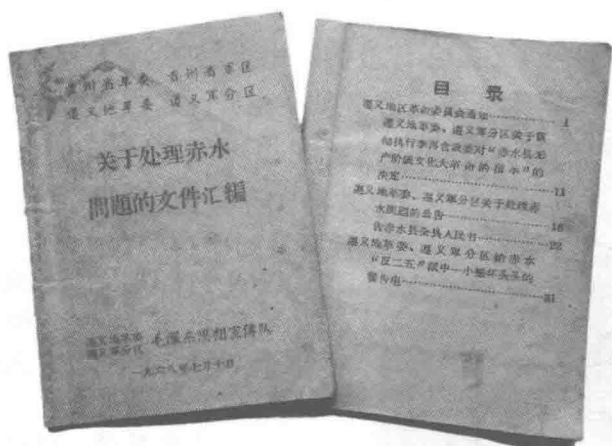 贵州省革委 贵州省军区
遵义地革委 遵义军分区
关于处理赤水
問題的文件汇编
遵义地革委
遵义军分区
毛澤东思想宣传队
一九六八年七月十日
目录
遵义地区革命委员会通知 1
遵义地革委、遵义军分区关于
彻执行李再含政委对“赤水县无
产阶级文化大革命的指示”的
决定 11
遵义地革委、遵义军分区关于处理赤
水問題的公告 16
告赤水县全县人民书 22
遵义地革委、遵义军分区給赤水
“反二五”派中一小撮坏头头的
警告电 31